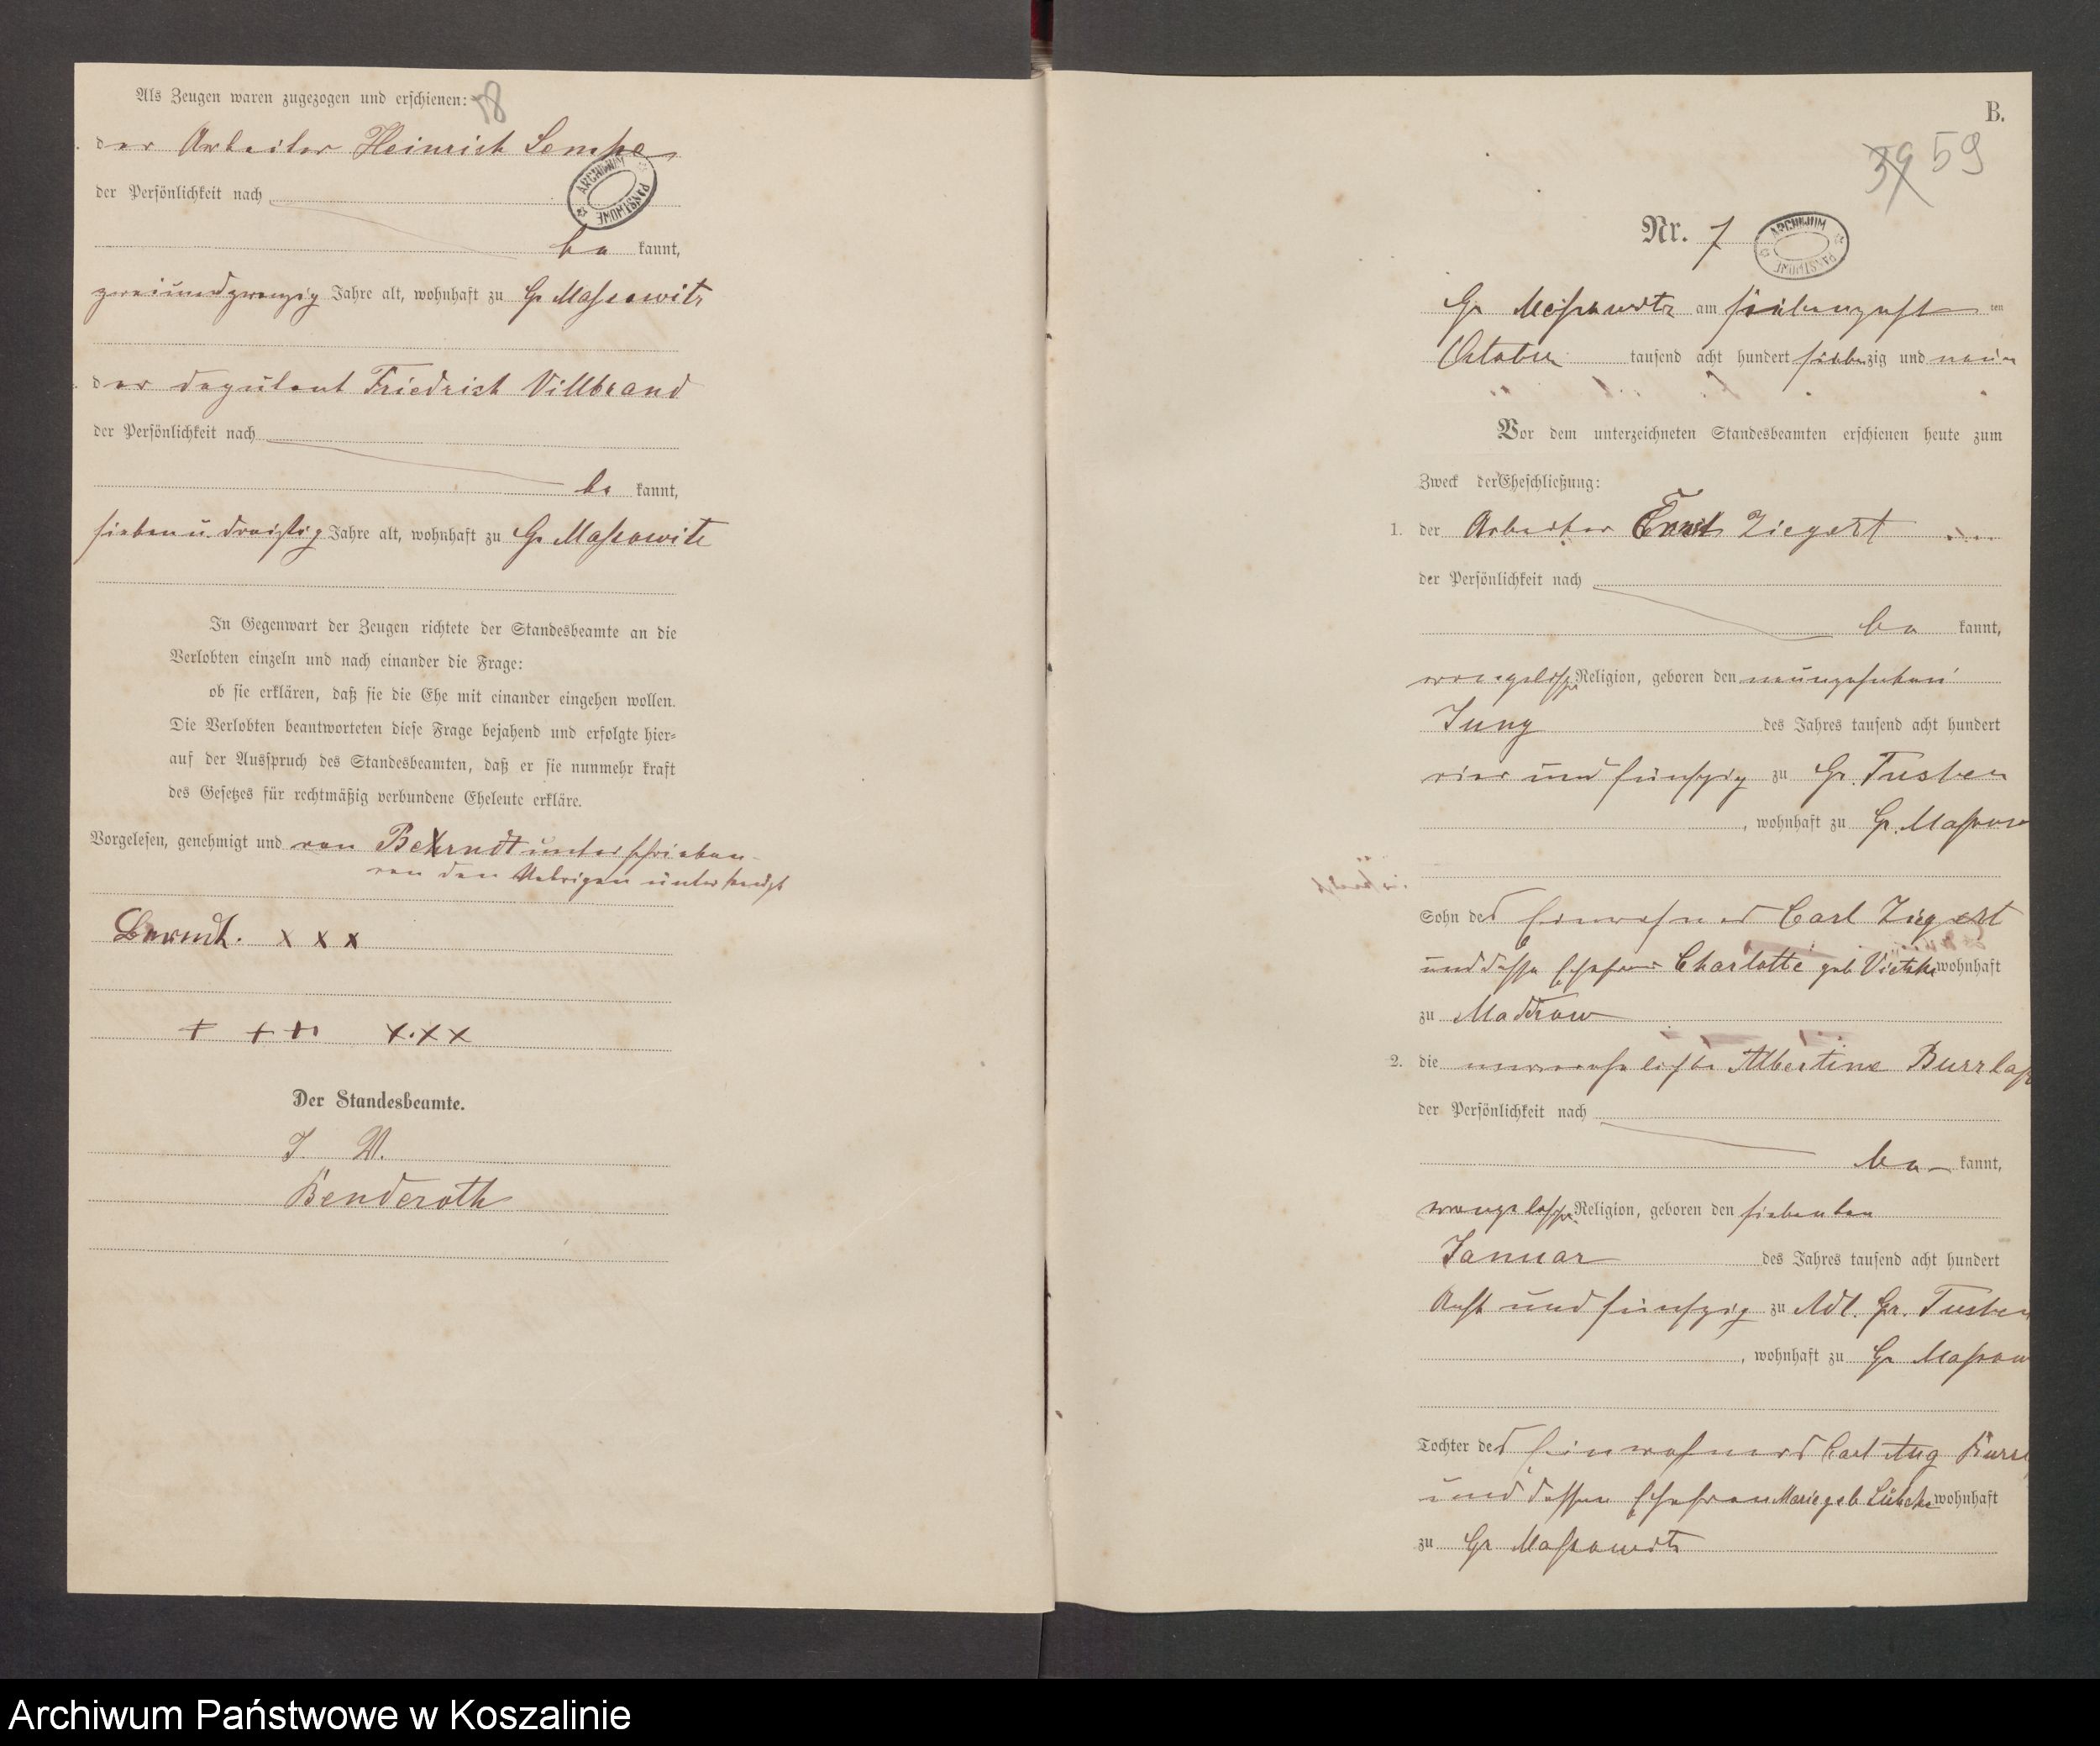 Als Zeugen waren zugezogen und erschienen: 58
der Arbeiter Heinrich Lempe
ARCHIWUM PAŃSTWOWE
der Persönlichkeit nach
be kannt,
zweiundzwanzig Jahre alt, wohnhaft zu Gr Massowitz
der deputant Friedrich Villbrand
der Persönlichkeit nach
be kannt,
sieben u. dreißig Jahre alt, wohnhaft zu Gr Massowitz
In Gegenwart der Zeugen richtete der Standesbeamte an die
Verlobten einzeln und nach einander die Frage:
ob sie erklären, daß sie die Ehe mit einander eingehen wollen.
Die Verlobten beantworteten diese Frage bejahend und erfolgte hier-
auf der Ausspruch des Standesbeamten, daß er sie nunmehr kraft
des Gesetzes für rechtmäßig verbundene Eheleute erkläre.
Vorgelesen, genehmigt und von Behrndt unterschrieben
von den Uebrigen unterkreuzt
Berndt. x x x
+ + + + x x x
Der Standesbeamte.
I. V.
Benderoth
B.
39 59
Nr. 7
ARCHIWUM PAŃSTWOWE
Gr Massowitz am siebenzehn ten
October tausend acht hundert siebenzig und neun
Vor dem unterzeichneten Standesbeamten erschienen heute zum
Zweck der Eheschließung:
1. der Arbeiter Ernst Ziegert
der Persönlichkeit nach
be kannt,
evangelischer Religion, geboren den neunzehnten
Juny des Jahres tausend acht hundert
vier und fünfzig zu Gr. Tuchen
, wohnhaft zu Gr. Massow
Sohn des Einwohners Carl Ziegert
und dessen Ehefrau Charlotte geb Vietzke wohnhaft
zu Moddrow
2. die unverehelichte Albertine Burrlaf
der Persönlichkeit nach
be kannt,
evangelischer Religion, geboren den siebenten
Januar des Jahres tausend acht hundert
Acht und fünfzig zu Adl. Gr. Tuchen
, wohnhaft zu Gr Massow
Tochter des Einwohners Carl Aug Burrl
und dessen Ehefrau Marie geb Lübcke wohnhaft
zu Gr Massowitz
Archiwum Państwowe w Koszalinie